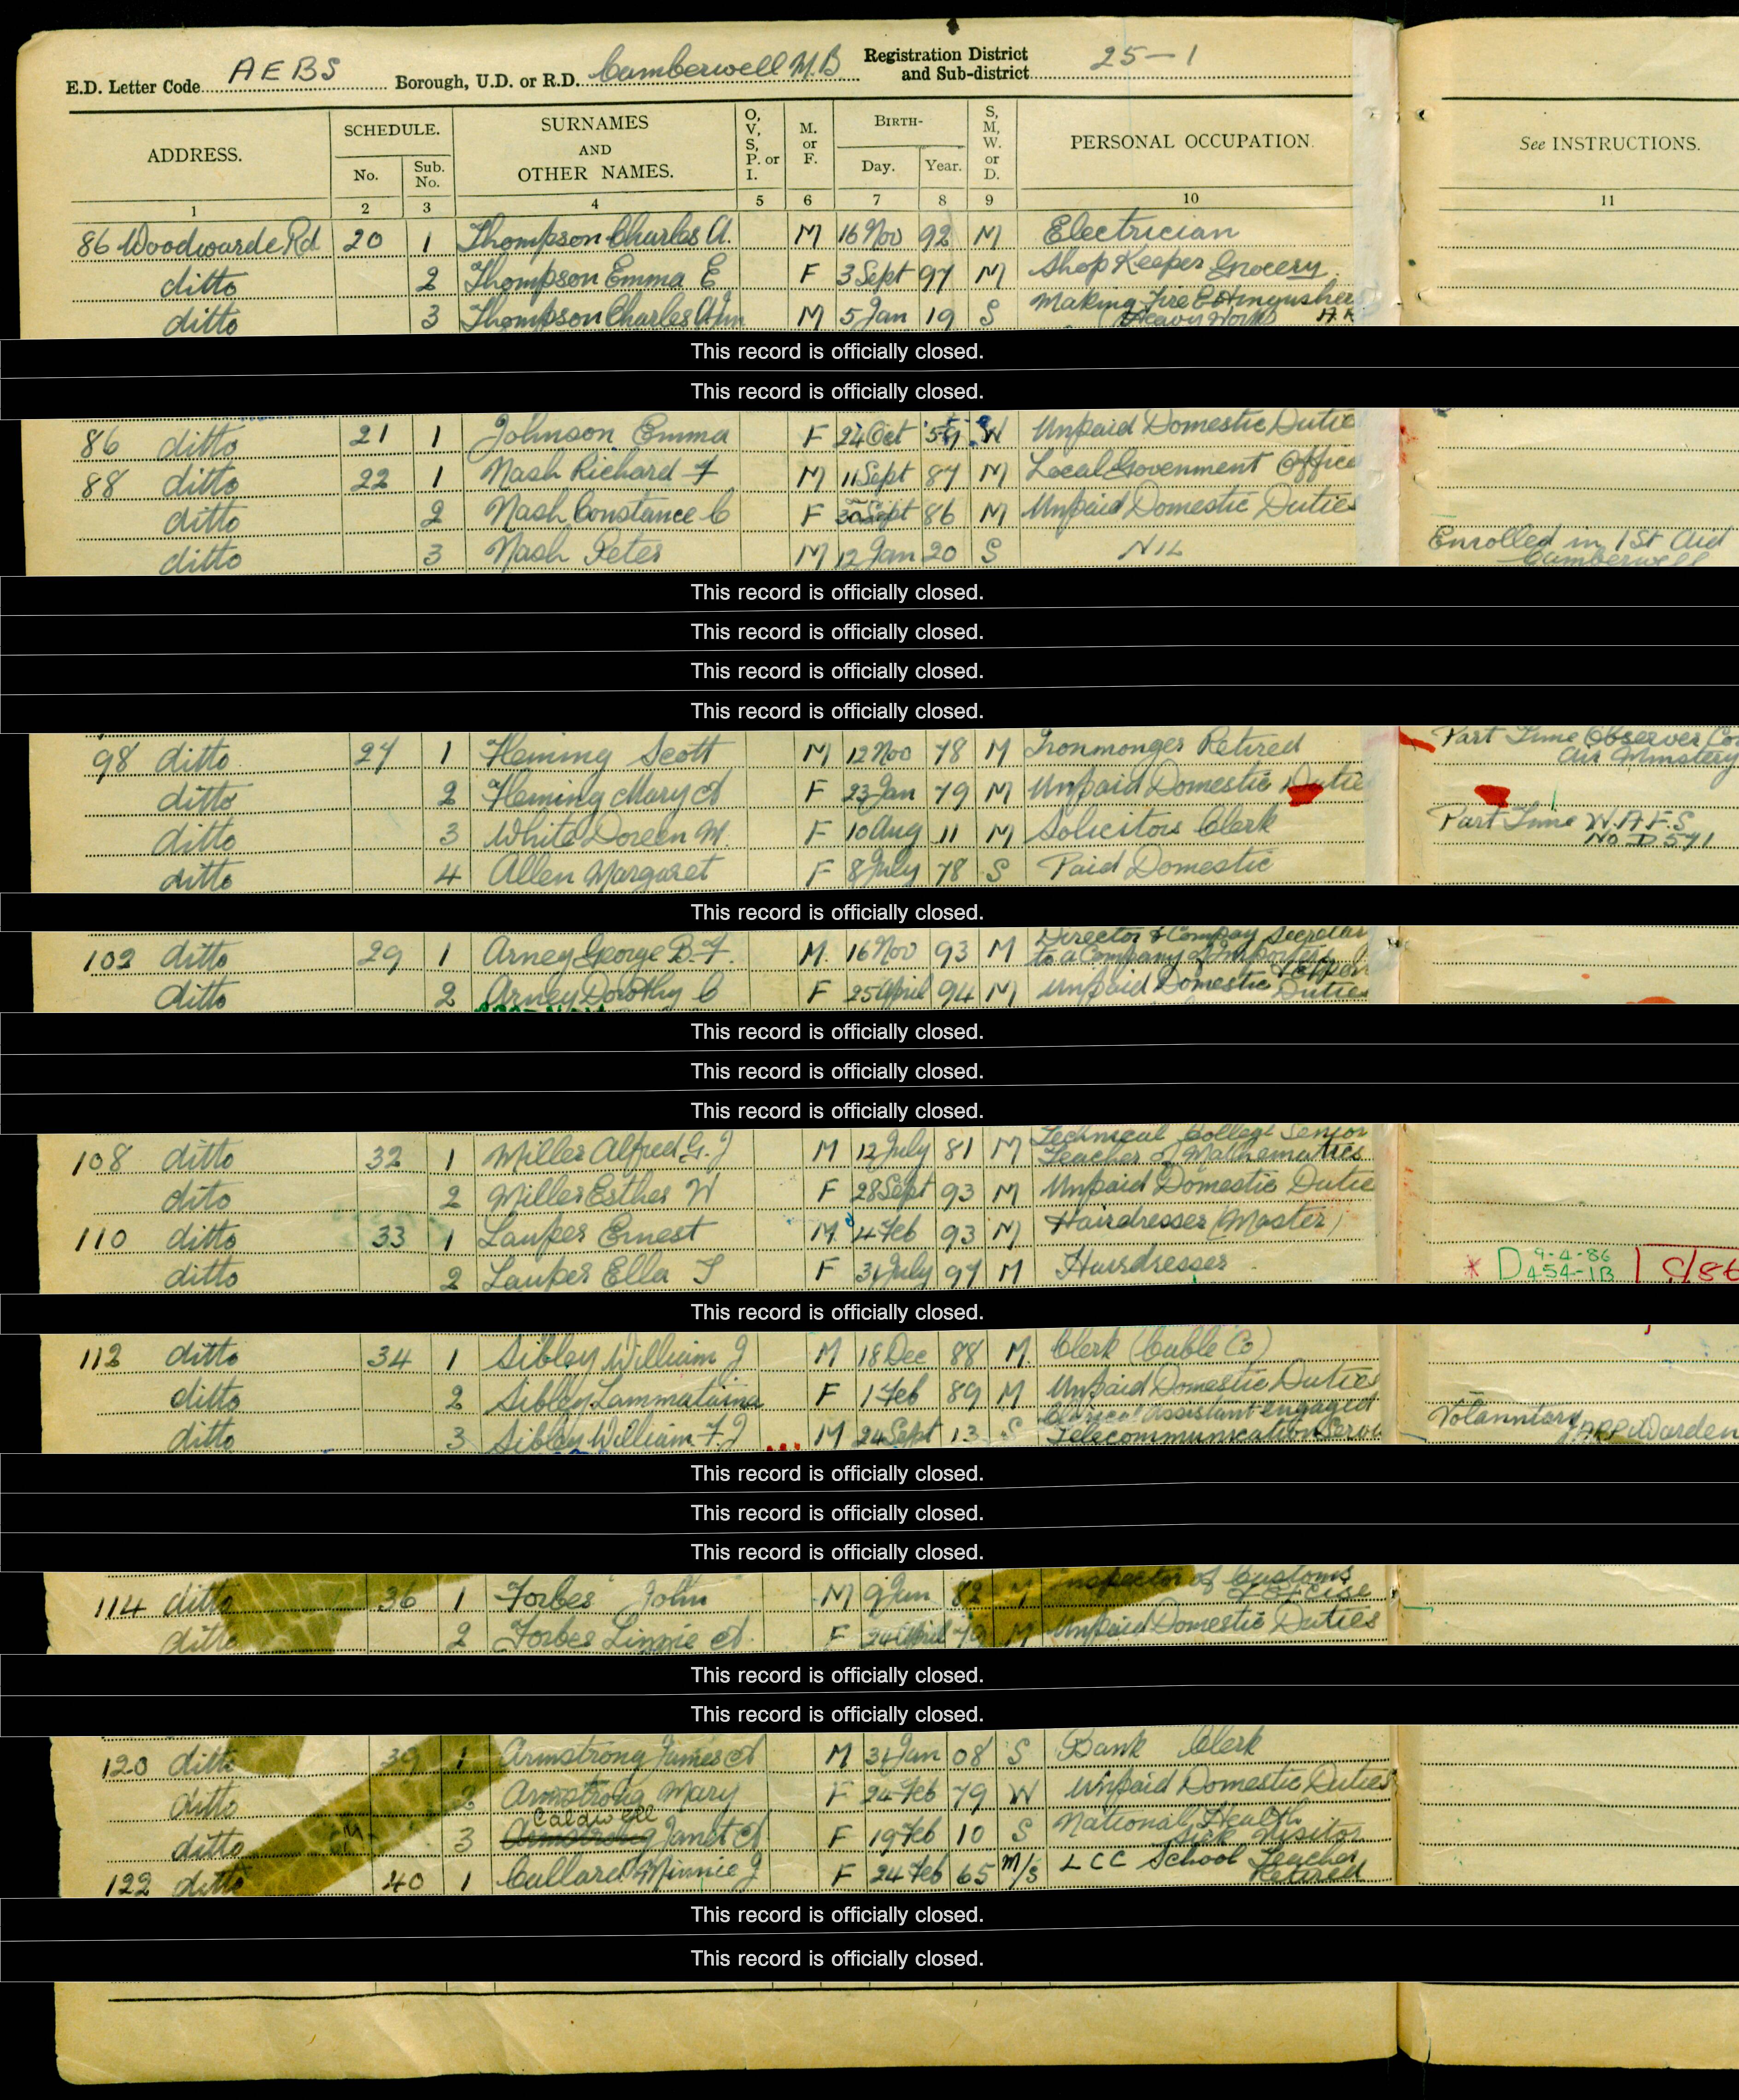 E.D. Letter Code AEBS Borough, U.D. or R.D. Camberwell M.B Registration District and Sub-district 25-1
ADDRESS. SCHEDULE. No. Sub. No. SURNAMES AND OTHER NAMES. O, V, S, P. or I. M. or F. BIRTH- Day. Year. S, M, W. or D. PERSONAL OCCUPATION. See INSTRUCTIONS.
1 2 3 4 5 6 7 8 9 10 11
86 Woodwarde Rd 20 1 Thompson Charles A. M 16 Nov 92 M Electrician
ditto 2 Thompson Emma E F 3 Sept 97 M Shop Keeper Grocery
ditto 3 Thompson Charles A Jun M 5 Jan 19 S Making Fire Extinguishers (Heavy Work)
This record is officially closed.
This record is officially closed.
86 ditto 21 1 Johnson Emma F 24 Oct 59 W Unpaid Domestic Dutie
88 ditto 22 1 Nash Richard F M 11 Sept 87 M Local Govenment Office
ditto 2 Nash Constance C F 30 Sept 86 M Unpaid Domestic Duties
ditto 3 Nash Peter M 12 Jan 20 S NIL Enrolled in 1st Aid Camberwell
This record is officially closed.
This record is officially closed.
This record is officially closed.
This record is officially closed.
98 ditto 27 1 Fleming Scott M 12 Nov 78 M Ironmonger Retired Part Time Observer Co Air Ministery
ditto 2 Fleming Mary A F 23 Jan 79 M Unpaid Domestic Dutie
ditto 3 White Doreen M. F 10 Aug 11 M Solicitors Clerk Part Time W.A.F.S No D 571
ditto 4 Allen Margaret F 8 July 78 S Paid Domestic
This record is officially closed.
102 ditto 29 1 Arney George B. F. M. 16 Nov 93 M Director & Compay Secretar to a Company of Importers
ditto 2 Arney Dorothy C F 25 April 94 M Unpaid Domestic Duties
This record is officially closed.
This record is officially closed.
This record is officially closed.
108 ditto 32 1 Miller Alfred G. J M 12 July 81 M Technical College Senior Teacher of Mathematics
ditto 2 Miller Esther W F 28 Sept 93 M Unpaid Domestic Dutie
110 ditto 33 1 Lauper Ernest M. 4 Feb 93 M Hairdresser (Master)
ditto 2 Lauper Ella F 31 July 97 M Hairdresser * D 9-4-86 454-1B C/86
This record is officially closed.
112 ditto 34 1 Sibley William J M 18 Dec 88 M. Clerk (Cable Co)
ditto 2 Sibley Lammataina F 1 Feb 89 M Unpaid Domestic Duties
ditto 3 Sibley William F. J M 24 Sept 13 S Clerical Assistant engaged Telecommunication Servi Volanntary ARP Warden
This record is officially closed.
This record is officially closed.
This record is officially closed.
114 ditto 36 1 Forbes John M 9 Jun 82 M Inspector of Customs & Excise
ditto 2 Forbes Linnie A F 24 April 79 M Unpaid Domestic Duties
This record is officially closed.
This record is officially closed.
120 ditto 39 1 Armstrong James A M 31 Jan 08 S Bank Clerk
ditto 2 Armstrong Mary F 24 Feb 79 W Unpaid Domestic Duties
Caldwell
ditto 3 Armstrong Janet A F 19 Feb 10 S National Health Sick Visitor
122 ditto 40 1 Cullard Minnie J F 24 Feb 65 M/S LCC School Teacher Retired
This record is officially closed.
This record is officially closed.